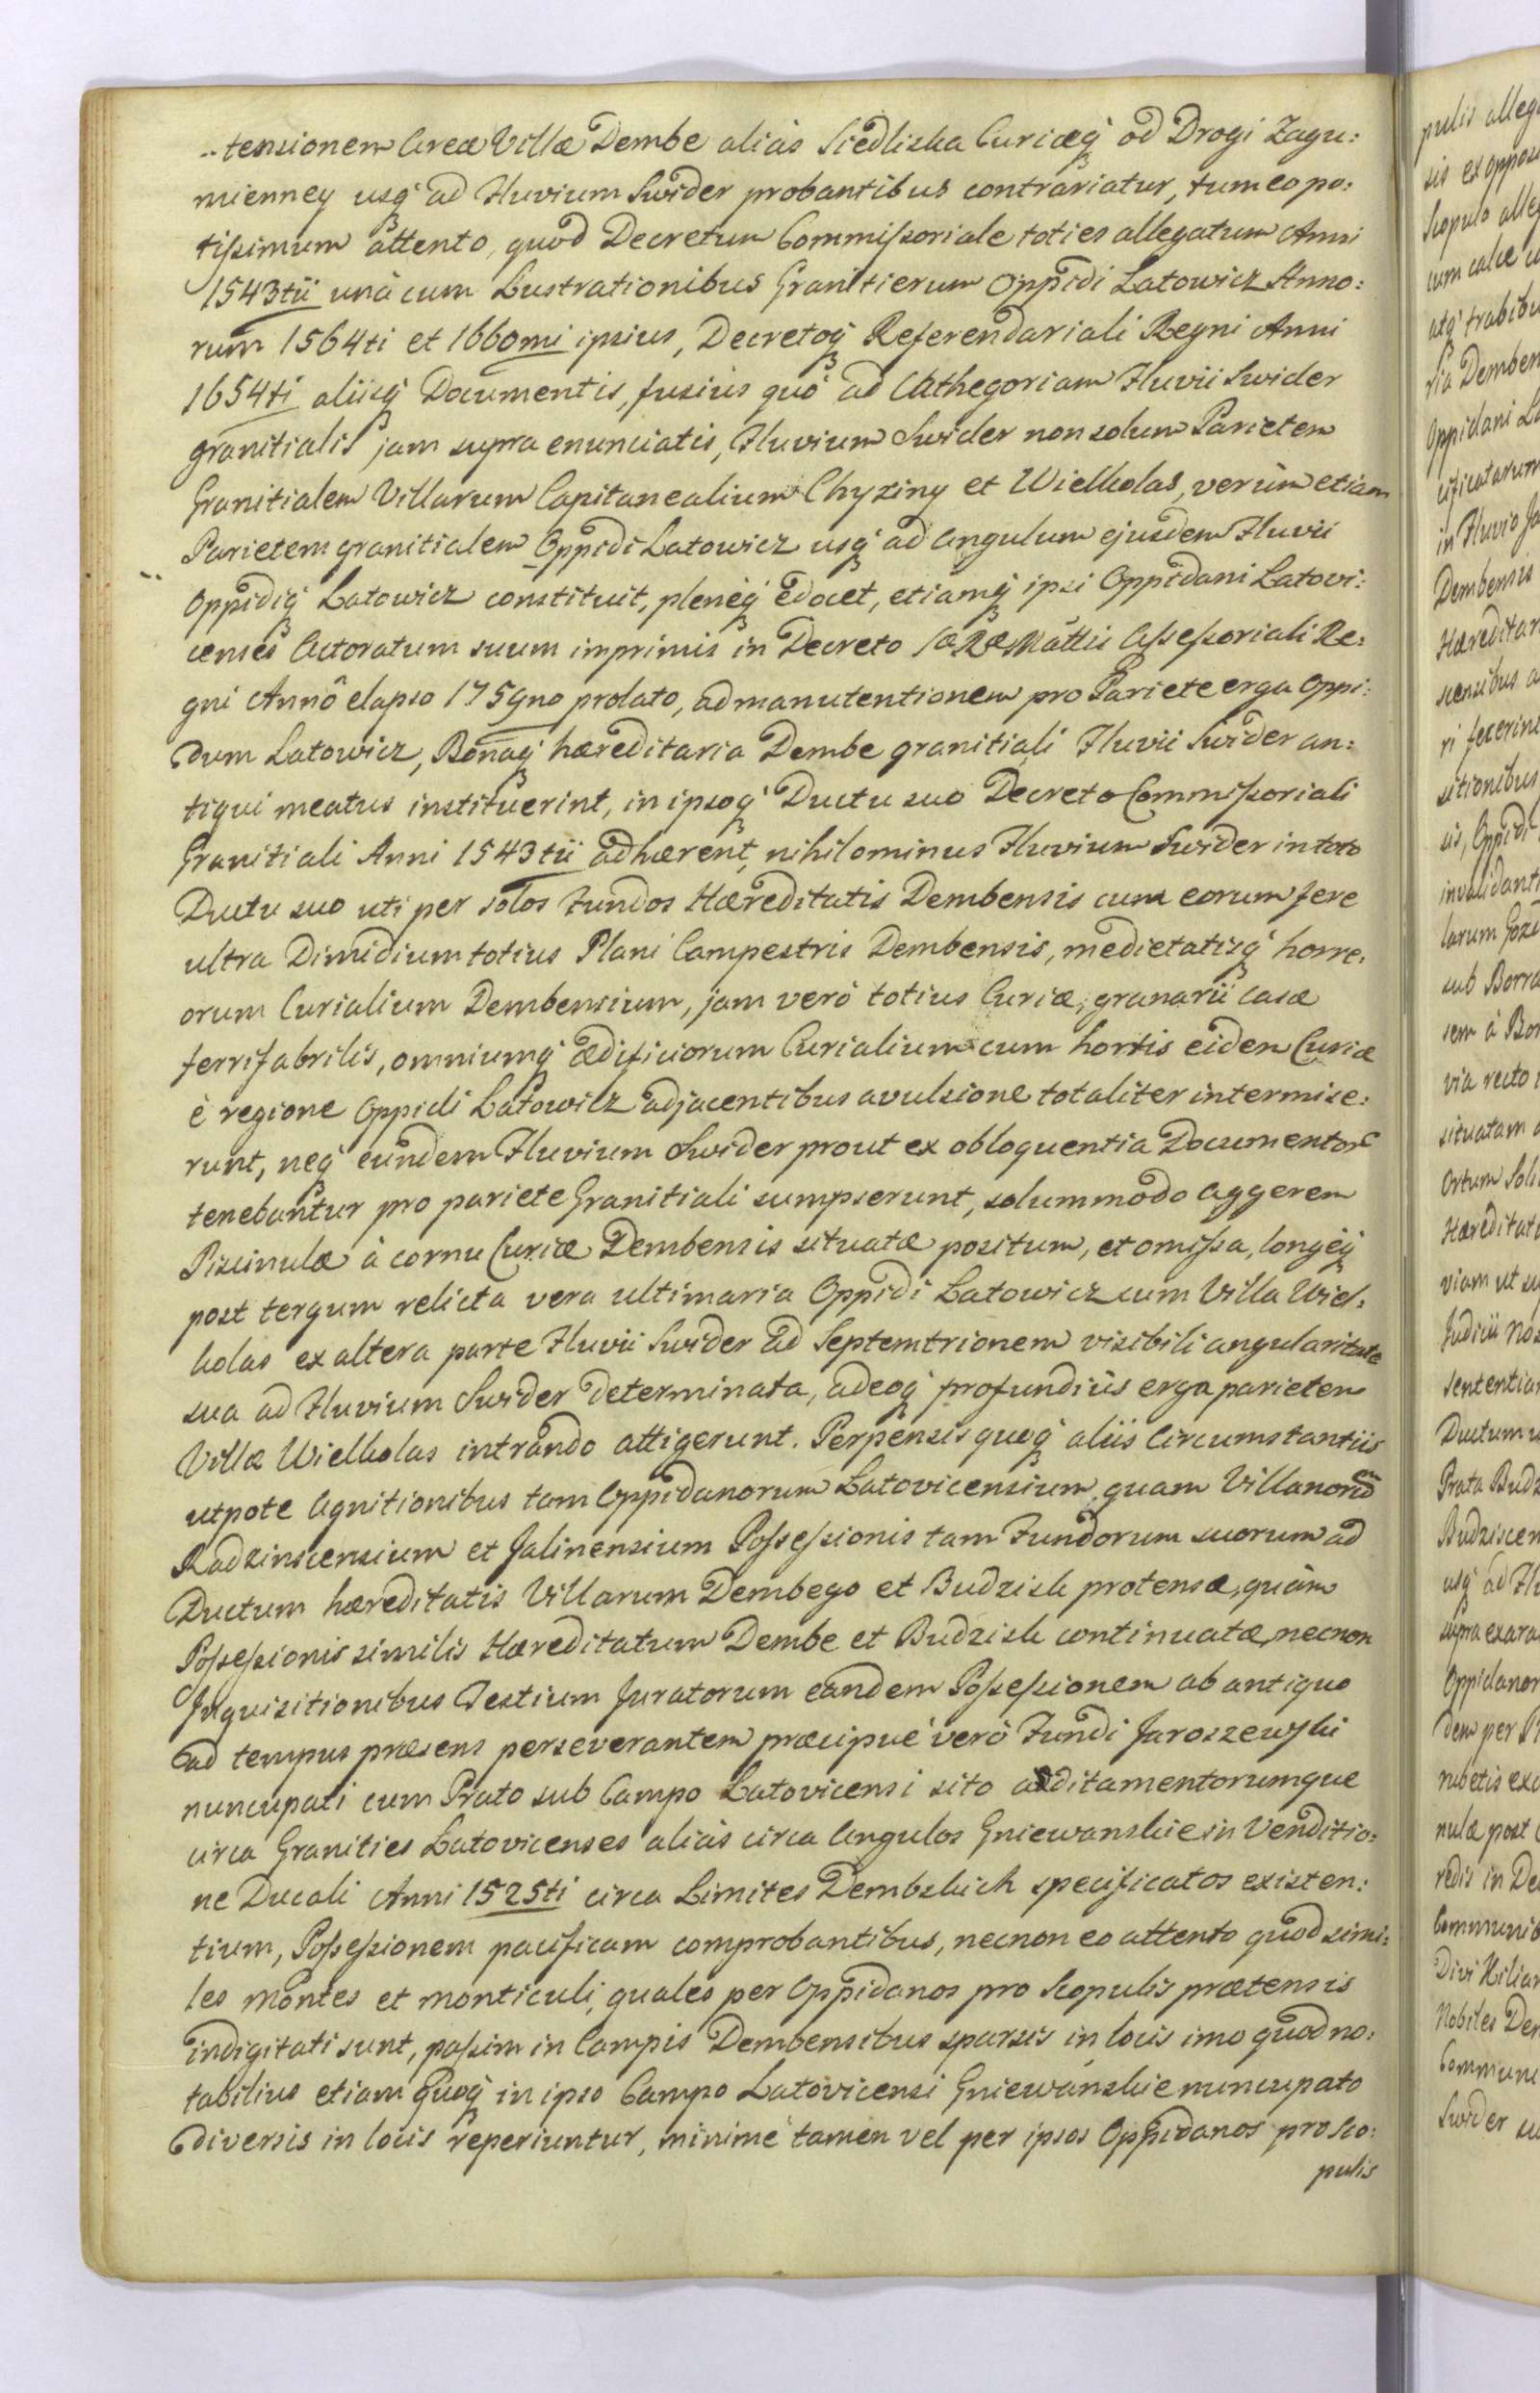 -tensionem Areæ Villæ Dembe aliàs Siedliska Curiæq̀ od Drogi Zagu:
mienney usq̀ ad Fluvium Swider probantibus contrariatur, tum eo po:
tissimum attento, quod Decretum Commissoriale toties allegatum Anni
1543tii unà cum Lustrationibus Granitierum Oppidi Latowicz Anno:
rum 1564ti et 1660mi ipsius, Decretoq̀ Referendariali Regni Anni
1654ti aliisq̀ Documentis, fusiùs quò ad Cathegoriam Fluvii Swider
granitialis jam supra enunciatis, Fluvium Swider non solum Parietem
Granitialem Villarum Capitanealium Chyziny et Wielkolas, verùm etiam
Parietem granitialem Oppidi Latowicz usq̀ ad Angulum ejusdem Fluvii
Oppidiq̀ Latowicz constituit, plenèq̀ edocet, etiamq̀ ipsi Oppidani Latovi:
censes Actoratum suum imprimis in Decreto SæRæMattis Assessoriali Re:
gni Annô elapso 1759no prolato, ad manutentionem pro Pariete erga Oppi:
dum Latowicz, Bonaq̀ hæreditaria Dembe granitiali Fluvii Swider an:
tiqui meatus instituerint, in ipsoq̀ Ductu suo Decreto Commissoriali
Granitiali Anni 1543tii adhærent, nihilominus Fluvium Swider in toto
Ductu suo uti per solos Fundos Hæreditatis Dembensis cum eorum fere
ultra Dimidium totius Plani Campestris Dembensis, medietatisq̀ horre:
orum Curialium Dembensium, jam verò totius Curiæ, granarii casæ
ferrifabrilis, omniumq̀ ædificiorum Curialium cum hortis eidem Curiæ
è regione Oppidi Latowicz adjacentibus avulsione totaliter intermise:
runt, neq̀ eundem Fluvium Swider prout ex obloquentia Documentor
tenebantur pro pariete Granitiali sumpserunt, solummodo Aggerem
Piscinulæ à cornu Curiæ Dembensis situatæ positum, et omissa, longèq̀
post tergum relicta vera ultimaria Oppidi Latowicz cum Villa Wiel:
kolas ex altera parte Fluvii Swider ad Septemtrionem visibili angularitate
sua ad Fluvium Swider determinata, adeoq̀ profundiùs erga parietem
Villæ Wielkolas intrando attigerunt. Perpensis quoq̀ aliis Circumstantiis
utpote Agnitionibus tam Oppidanorum Latovicensium quam Villanorum
Radzinscensium et Jalinensium Possessionis tam Fundorum suorum ad
Ductum hæreditatis Villarum Dembego et Budzisk protensæ, quàm
Possessionis similis Hæreditatum Dembe et Budzisk continuatæ, necnon
Inquisitionibus Testium Juratorum eandem Possessionem ab antiquo
ad tempus præsens perseverantem præcipuè verò Fundi Jaroszewski
nuncupati cum Prato sub Campo Latovicensi sito additamentorumque
circa Granities Latovicenses aliàs circa Angulos Gniewanskie in Venditio:
ne Ducali Anni 1525ti circa Limites Dembskich specificatos existen:
tium, Possessionem pacificam comprobantibus, necnon eo attento quod simi:
les montes et monticuli, quales per Oppidanos pro Scopulis prætensis
indigitati sunt, passim in Campis Dembensibus sparsis in locis imo quod no:
tabilius etiam quoq̀ in ipso Campo Latovicensi Gniewanskie nuncupato
diversis in locis reperiuntur, minimè tamen vel per ipsos Oppidanos pro Sco:
pulis